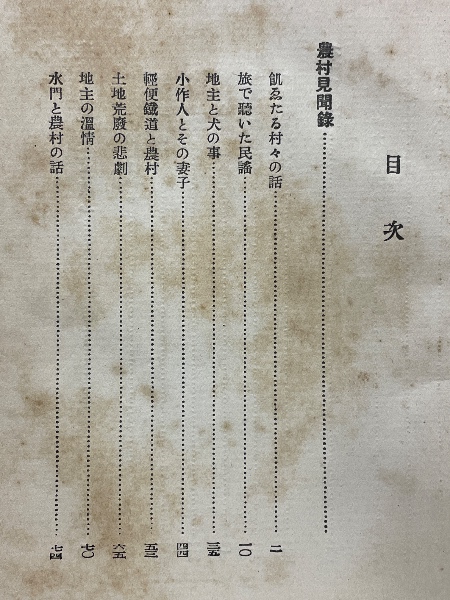 目次
農村見聞錄
飢ゑたる村々の話 二
旅で聽いた民謠 一〇
地主と犬の事 三五
小作人とその妻子 四四
輕便鐵道と農村 五三
土地荒廢の悲劇 六五
地主の溫情 七〇
水門と農村の話 七四